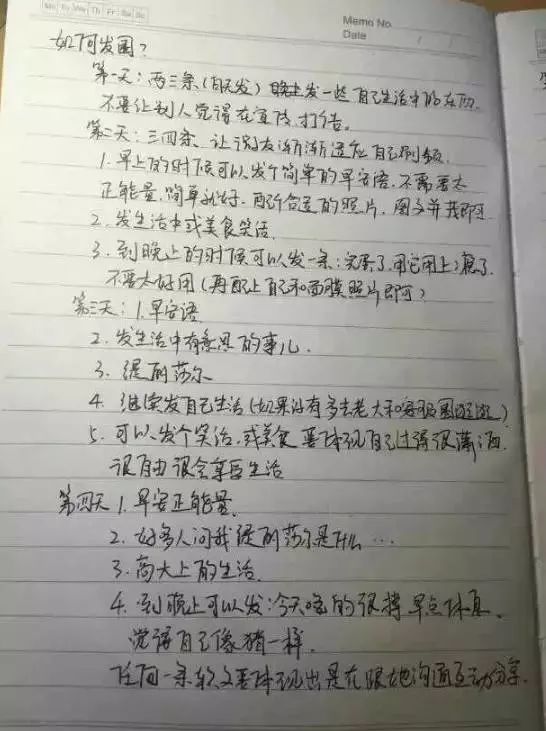 Mo Tu We Th Fr Sa Su
Memo No.
Date / /
如何发圈?
第一天:两三条(白天发)晚上发一些自己生活中的东西
不要让别人觉得在宣传,打广告。
第二天:三四条 让朋友渐渐适应自己刷频
1.早上的时候可以发个简单的早安语,不需要太
正能量,简单就好.配个合适的照片,图文并茂即可
2.发生活中或美食笑话
3.到晚上的时候可以发一条:完蛋了,用它用上瘾了
不要太好用(再配上自己和面膜照片即可)
第三天:1.早安语
2.发生活中有意思的事儿.
3.缇丽莎尔
4.继续发自己生活(如果没有多去老大和
5.可以发个笑话,或美食 要体现自己过得很潇洒
很自由 很会享受生活
第四天 1.早安正能量.
2.好多人问我缇丽莎尔是什么…
3.高大上的生活.
4.到晚上可以发:今天吃的很撑 早点休息、
觉得自己像猪一样.
任何一条软文要体现出是在跟她沟通互动分享.